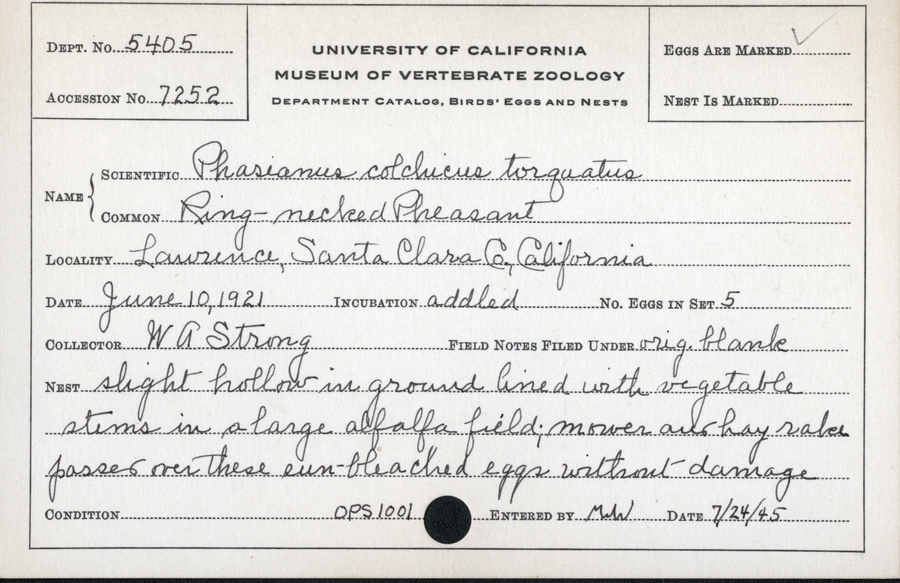 Dept. No. 5405
Accession No. 7252
UNIVERSITY OF CALIFORNIA
MUSEUM OF VERTEBRATE ZOOLOGY
Department Catalog, Birds' Eggs and Nests
Eggs Are Marked ✓
Nest Is Marked
Name { Scientific Phasianus colchicus torquatus
Common Ring-necked Pheasant
Locality Lawrence, Santa Clara Co., California
Date June 10, 1921 Incubation addled No. Eggs in Set 5
Collector W A Strong Field Notes Filed Under orig. blank
Nest slight hollow in ground lined with vegetable
stems in a large alfalfa field; mower and hay rake
passed over these sun-bleached eggs without damage
Condition OPS 1001 Entered by Date 7/24/45